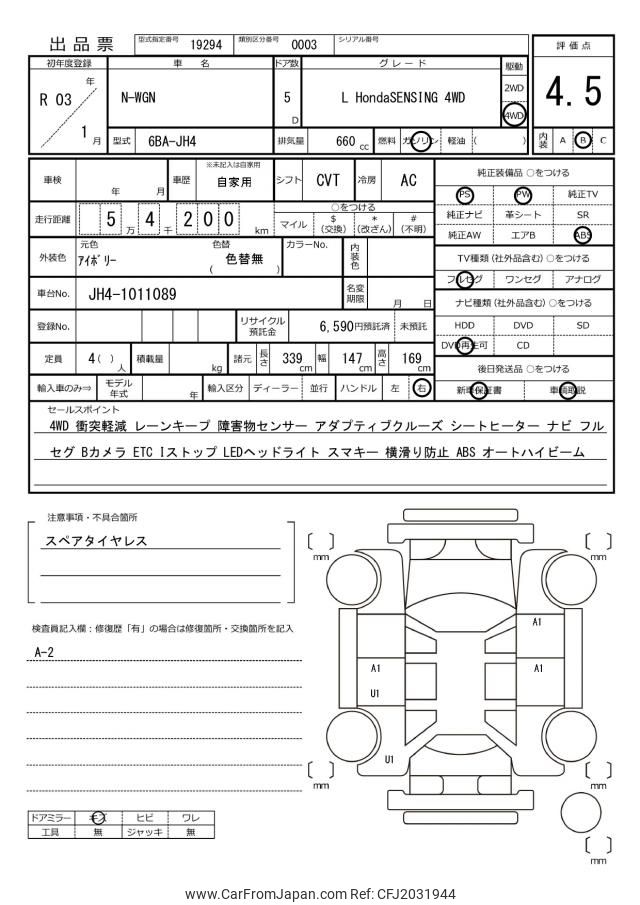 出品票 型式指定番号 19294 類別区分番号 0003 シリアル番号
評価点
4.5
内装 A B C
初年度登録 車名 ドア数 グレード 駆動
R 03 年 1 月
N-WGN 5 D L HondaSENSING 4WD
2WD
4WD
型式 6BA-JH4 排気量 660 cc 燃料 ガソリン 軽油 ( )
車検 年 月 車歴 ※未記入は自家用 自家用 シフト CVT 冷房 AC
走行距離 5 万 4 千 2 0 0 km
○をつける
マイル $ (交換) * (改ざん) # (不明)
外装色 元色 アイボリー 色替 ( 色替無 ) カラーNo. 内装色
車台No. JH4-1011089 名変期限 月 日
登録No. リサイクル預託金 6,590円預託済 未預託
定員 4( ) 人 積載量 kg 諸元 長さ 339 cm 幅 147 cm 高さ 169 cm
輸入車のみ⇒ モデル年式 年 輸入区分 ディーラー 並行 ハンドル 左 右
純正装備品 ○をつける
PS PW 純正TV
純正ナビ 革シート SR
純正AW エアB ABS
TV種類 (社外品含む) ○をつける
フルセグ ワンセグ アナログ
ナビ種類 (社外品含む) ○をつける
HDD DVD SD
DVD再生可 CD
後日発送品 ○をつける
新車保証書 車輌取説
セールスポイント
4WD 衝突軽減 レーンキープ 障害物センサー アダプティブクルーズ シートヒーター ナビ フル
セグ Bカメラ ETC Iストップ LEDヘッドライト スマキー 横滑り防止 ABS オートハイビーム
注意事項・不具合箇所
スペアタイヤレス
検査員記入欄：修復歴「有」の場合は修復箇所・交換箇所を記入
A-2
mm
mm
A1
A1
A1
U1
U1
mm
mm
mm
ドアミラー キズ ヒビ ワレ
工具 無 ジャッキ 無
www.CarFromJapan.com Ref: CFJ2031944